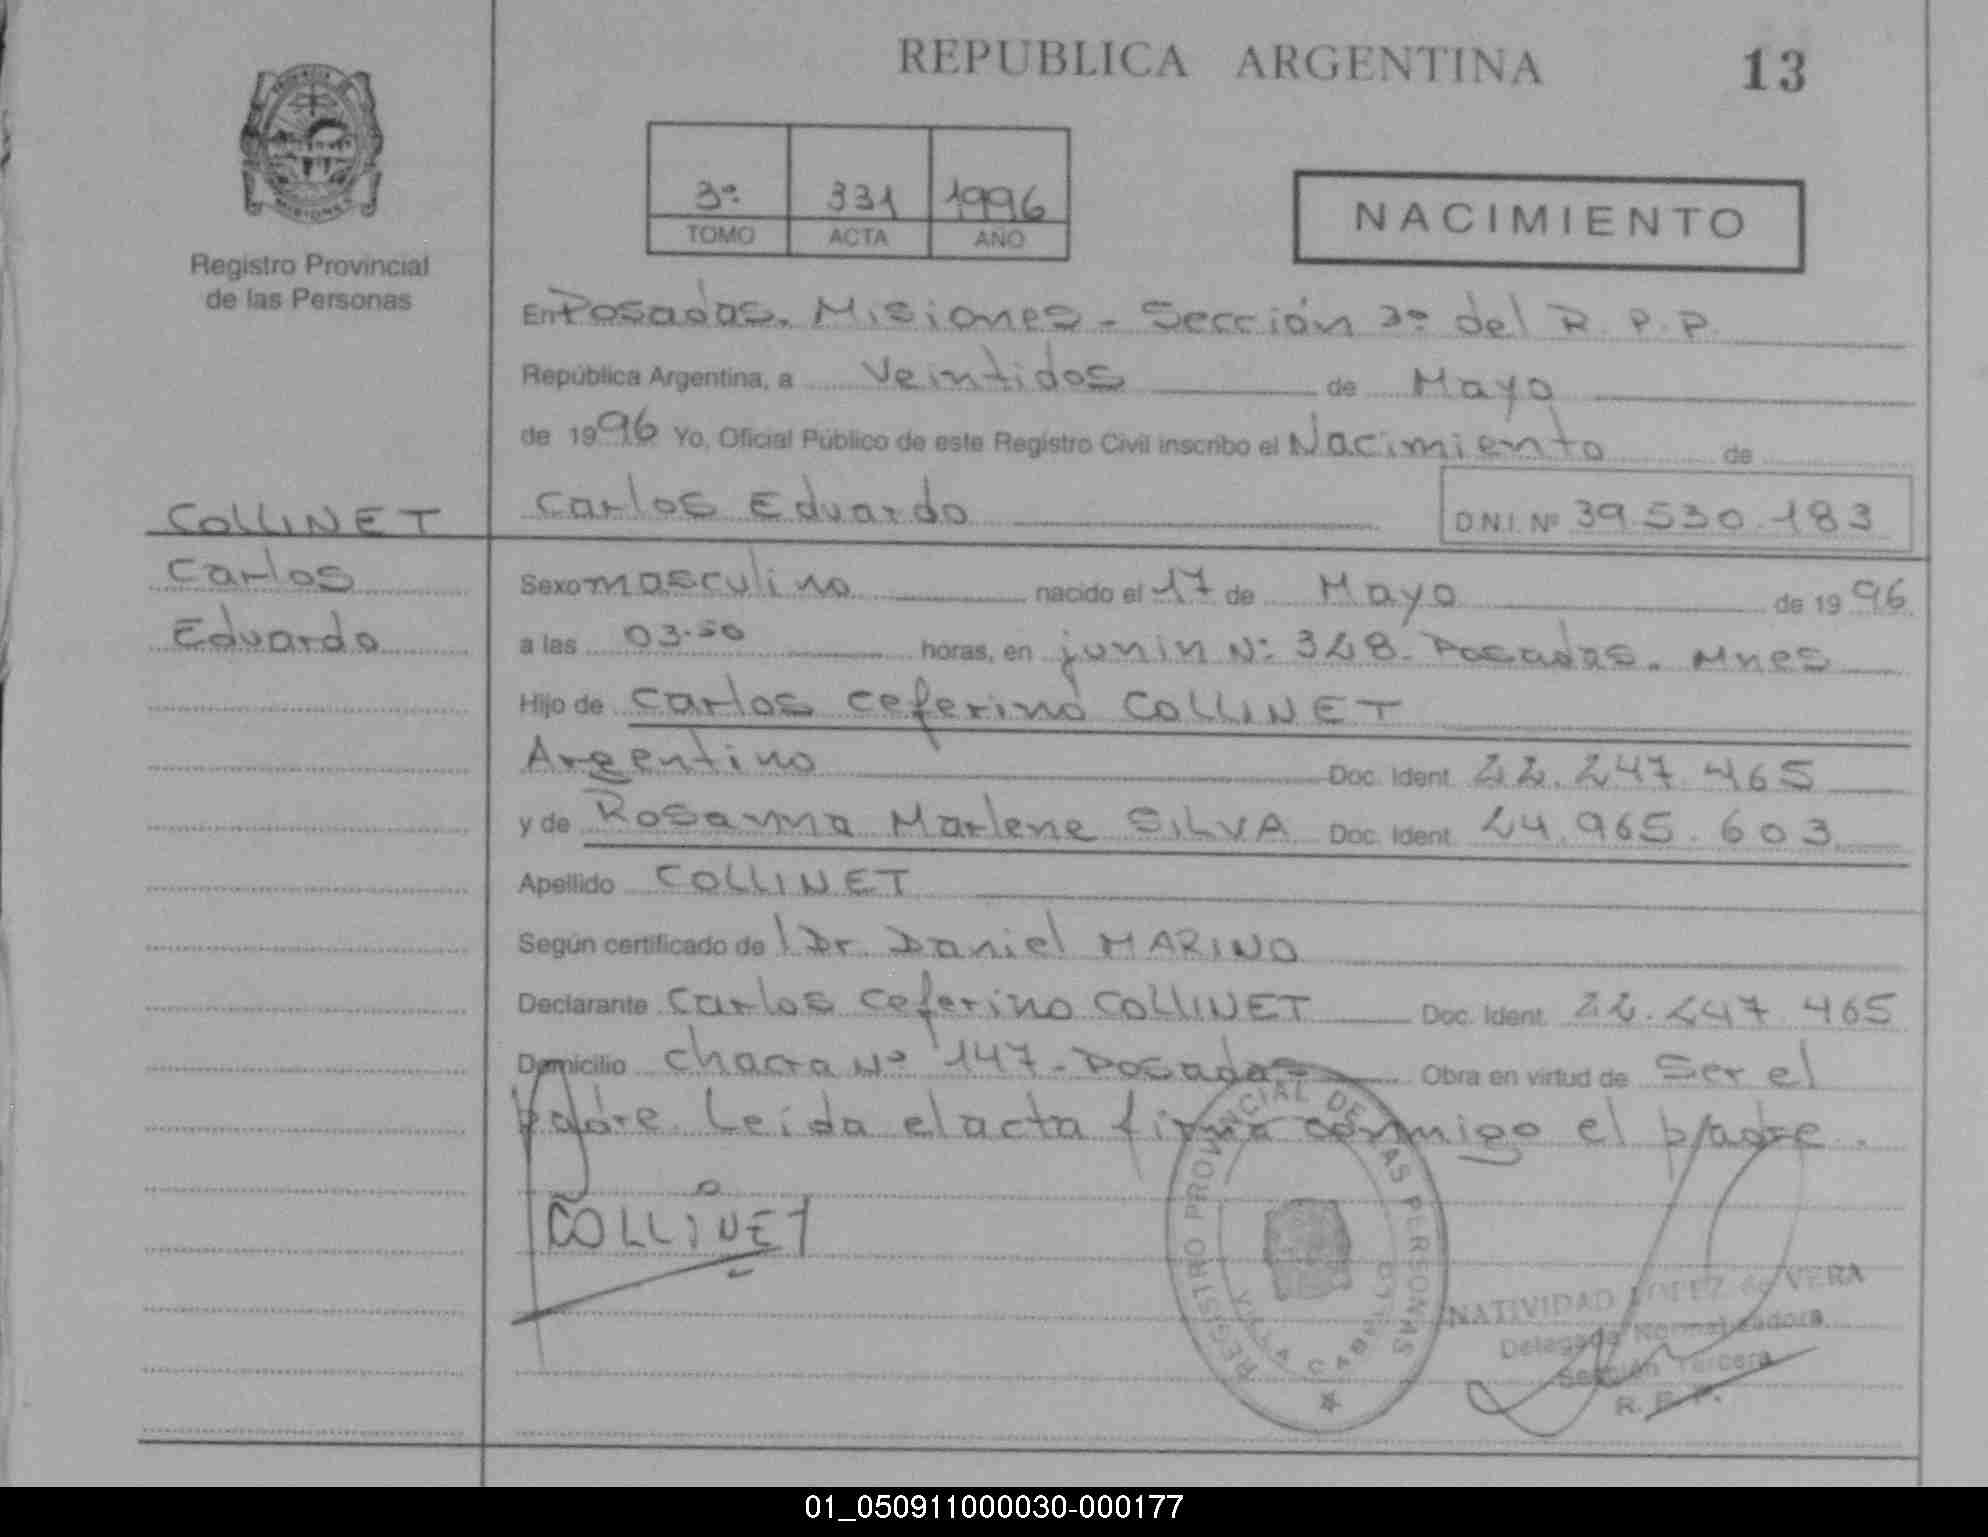 REPUBLICA ARGENTINA 13
3º 331 1996
TOMO ACTA AÑO
NACIMIENTO
MISIONES
Registro Provincial
de las Personas
En Posadas. Misiones - Sección 3º del R. P. P.
República Argentina, a Veintidos de Mayo
de 1996 Yo, Oficial Público de este Registro Civil inscribo el Nacimiento de
COLLINET Carlos Eduardo D.N.I. Nº 39.530.183
Carlos Sexo masculino nacido el 17 de Mayo de 1996
Eduardo a las 03.50 horas, en junin Nº 348. Posadas. Mnes
Hijo de Carlos Ceferino COLLINET
Argentino Doc. Ident. 22.247.465
y de Rosanna Marlene SILVA Doc. Ident. 24.965.603
Apellido COLLINET
Según certificado de l Dr. Daniel MARINO
Declarante Carlos Ceferino COLLINET Doc. Ident. 22.247.465
Domicilio Chacra Nº 147 - Posadas Obra en virtud de Ser el
padre. Leida el acta firma conmigo el padre.
COLLINET
REGISTRO PROVINCIAL DE LAS PERSONAS
VILLA CABELLO
NATIVIDAD LOPEZ de VERA
Delegada Normalizadora
Sección Tercera
R. P. P.
01_050911000030-000177